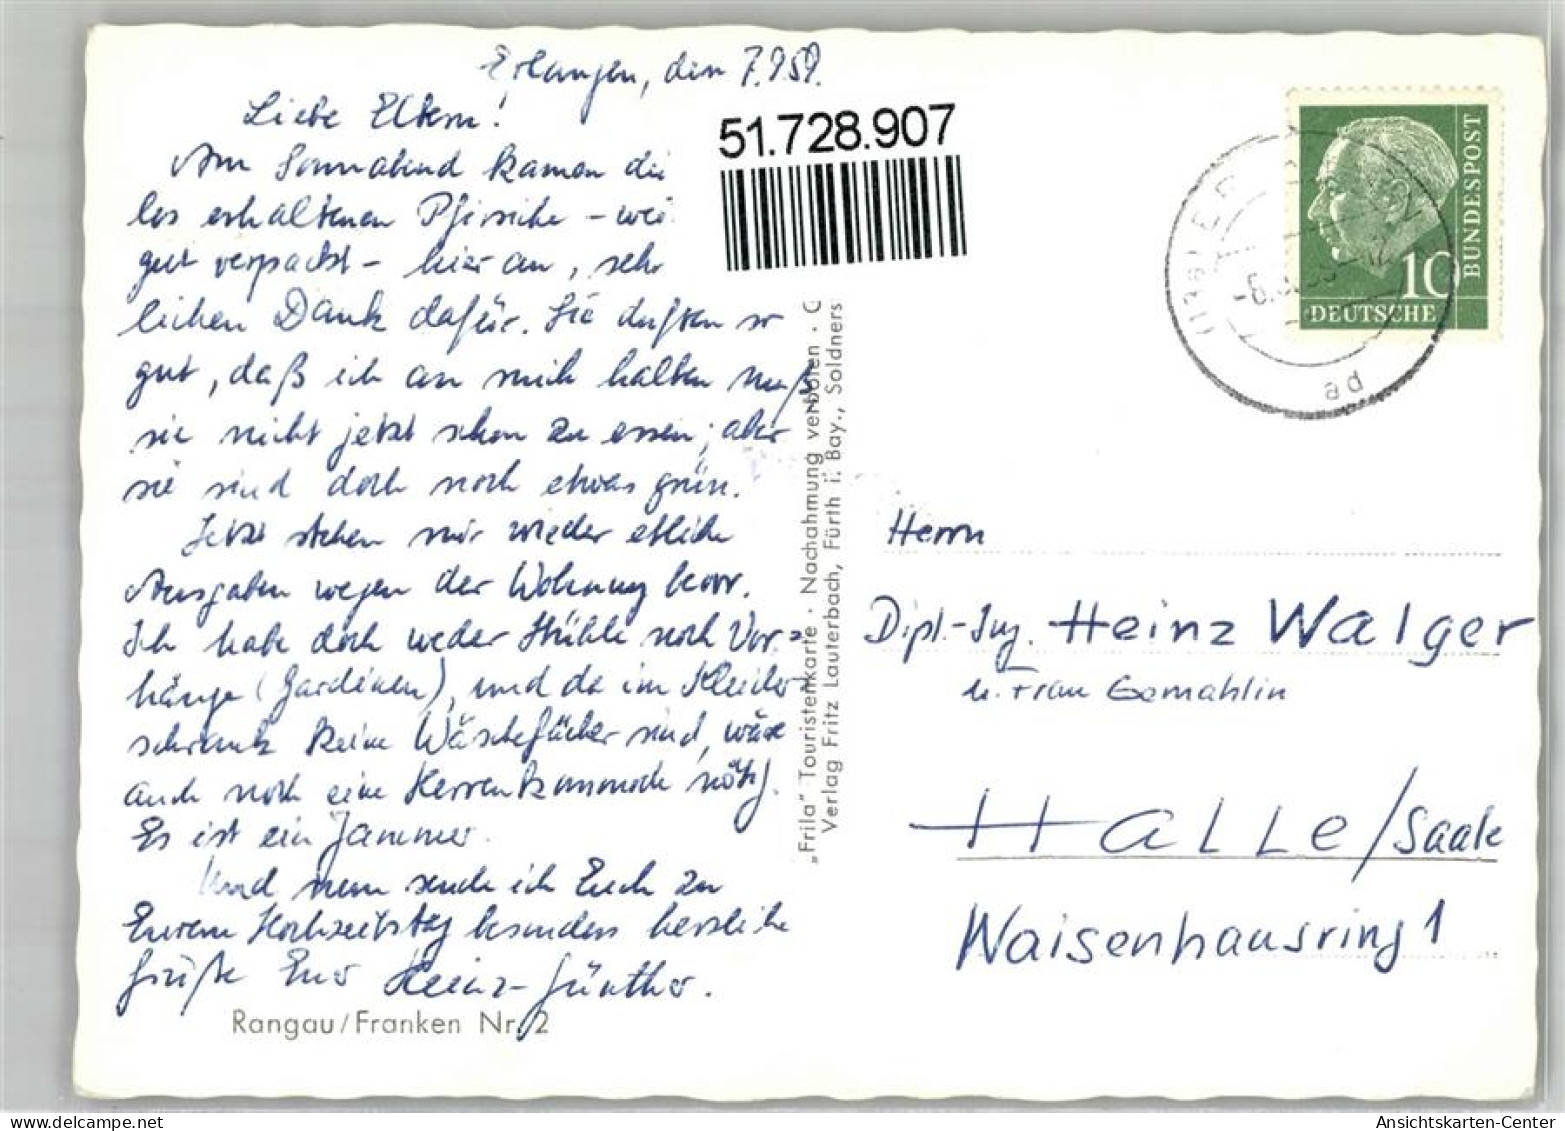 Erlangen, den 7.9.59.
Liebe Eltern!
Am Sonnabend kamen die
los erhaltenen Pfirsiche – wei
gut verpackt – hier an, sehr
lichen Dank dafür. Sie duften so
gut, daß ich an mich halten muß
sie nicht jetzt schon zu essen; aber
sie sind doch noch etwas grün.
Jetzt stehen mir wieder etliche
Ausgaben wegen der Wohnung bevor.
Ich habe doch weder Stühle noch Vor-
hänge (Gardinen), und da im Kleider-
schrank keine Wäschefächer sind, wäre
auch noch eine Herrenkommode nötig.
Es ist ein Jammer.
Und nun sende ich Euch zu
Eurem Hochzeitstag besonders herzliche
Grüße Euer Heinz-Günther.
Rangau/Franken Nr. 2
51.728.907
„Frila“ Touristenkarte · Nachahmung verboten · G
Verlag Fritz Lauterbach, Fürth i. Bay., Soldners
DEUTSCHE
BUNDESPOST
10
ad
Herrn
Dipl.-Ing. Heinz Walger
u. Frau Gemahlin
Halle/Saale
Waisenhausring 1
AnsichtskartenCenter